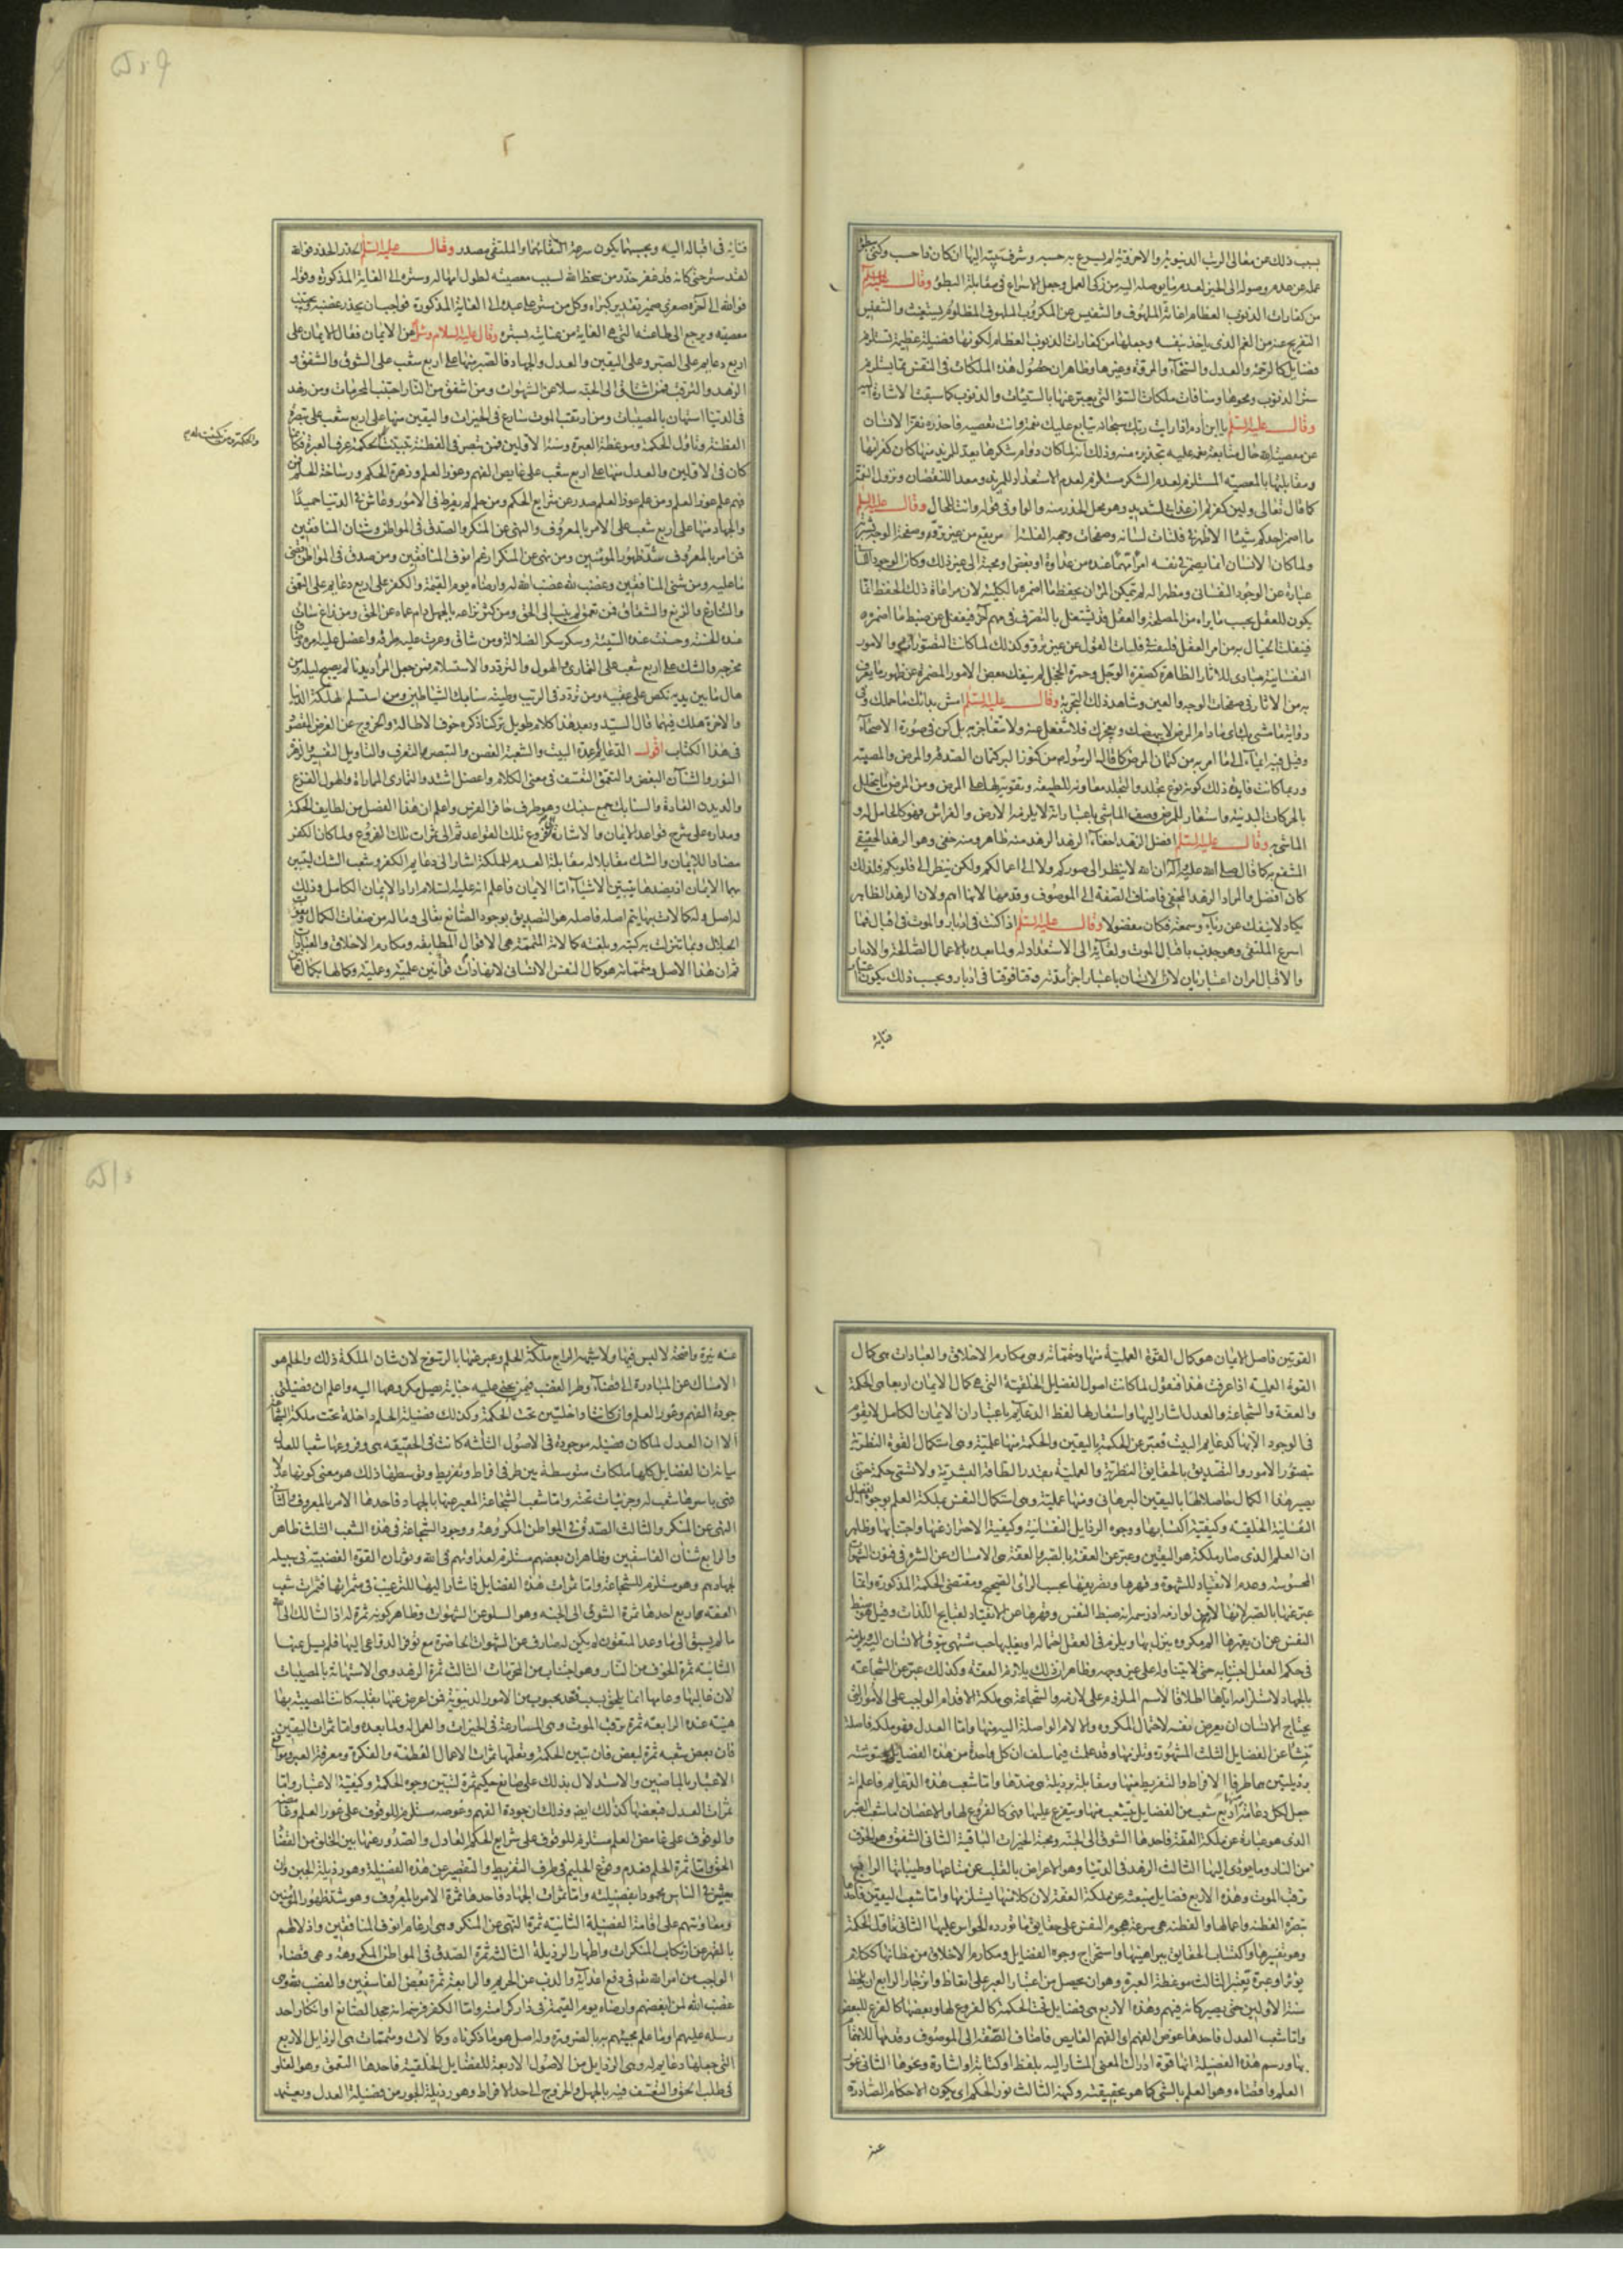 بسبب ذلك عن معالى الرتب الدنيوية والاخروية لم يسرع به حسبه وشرف بيته اليها ان كان ذا حسب وكنى
عمله عن عدم وصوله الى الخير لعدم ما يوصله اليه من زكى العمل وجعل الاسراع فى مقابلة البطؤ وقال عليه السلم
من كفارات الذنوب العظام اغاثة الملهوف والتنفيس عن المكروب الملهوف المظلوم يستغيث والتنفيس
التفريج عنه من الغم الذى ياخذ بنفسه وجعلها من كفارات الذنوب العظام لكونها فضيلة عظيمة تستلزم
فضايل كالرحمة والعدل والسخاء والمروة وغيرها وظاهر ان حصول هذه الملكات فى النفس مما يستلزم
ستر الذنوب ومحوها ومنافات ملكات السوء التى يعبر عنها بالسيئات والذنوب كما سبقت الاشارة اليه
وقال عليه السلم يا ابن ادم اذا رايت ربك سبحانه يتابع عليك نعمه وانت تعصيه فاحذره نفر الانسان
عن معصية الله حال متابعة نعمه عليه بتحذيره منه وذلك انه لما كان دوام شكرها يعد للمزيد منها كان كفرانها
ومقابلتها بالمعصية المستلزم لعدم الشكر مستلزم لعدم الاستعداد للمزيد ومعدا للنقصان ونزول النقمة
كما قال تعالى ولئن كفرتم ان عذابى لشديد وهو محل الحذر منه والواو فى قوله وانت للحال وقال عليه السلم
ما اضمر احدكم شيئا الا ظهر فى فلتات لسانه وصفحات وجهه
ولما كان الانسان انما يضمر فى نفسه امرا مهما عنده من عداوة او بغض او محبة الى غير ذلك وكان الوجود
عبارة عن الوجود النفسانى ومظهرا له لم تمكن المرء ان يحفظ ما اضمره بالكلية لان مراعاة ذلك الحفظ انما
يكون للعقل بحسب ما يراه من المصلحة والعقل قد يشتغل بالتصرف فى مهم آخر فيغفل عن ضبط ما اضمره
فينفلت الخيال به من امر العقل فلتات القول عن غير تروّ وكذلك لما كانت التصورات والامور
النفسانية مبادى للاثار الظاهرة كصفرة الوجل وحمرة الخجل لم ينفك بعض الامور المضمرة عن ظهور ما يعرف
به من الاثار فى صفحات الوجه والعين وشاهد ذلك التجربة وقال عليه السلم امش بدائك ما حمل بك
اى ما دام المرض لا يبهضك ويعجزك فلا تنفعل عنه ولا تتعاجز به بل كن فى صورة الاصحاء
وقيل فيه ايماء الى ما امر به من كتمان المرض كما قال الرسول من كنوز البر كتمان الصدقة والمرض والمصيبة
وربما كانت فايدة ذلك كونه نوع تجلد والتجلد معاونة للطبيعة وتقوية لها على المرض ومن المرض ما يتحلل
بالحركات البدنية واستعار للمرض وصف الماشى باعتبار انه لا يلزمه الارض والفراش فهو كالحامل له و
الماشى به وقال عليه السلم افضل الزهد اخفاء الزهد الزهد منه ظاهر ومنه خفى وهو الزهد الحقيقى
المنتفع به كما قال صلى الله عليه وآله ان الله لا ينظر الى صوركم ولا الى اعمالكم ولكن ينظر الى قلوبكم فلذلك
كان افضل والمراد الزهد المخفى فاضاف الصفة الى الموصوف وقدمها لانها اهم ولان الزهد الظاهر
يكاد لا ينفك عن رياء وسمعة فكان مفضولا وقال عليه السلم اذا كنت فى ادبار والموت فى اقبال فما
اسرع الملتقى وهو جذب باقبال الموت ولقائه الى الاستعداد له ولما بعده بالاعمال الصالحة والادبار
والاقبال امران اعتباريان لان الانسان باعتبار اجزاء مدته وقتا فوقتا فى ادبار وبحسب ذلك يكون
فتاته
فنائه فى اقباله اليه وبحسبهما يكون سرعة التقائهما والملتقى مصدر وقال عليه السلم الحذر الحذر فوالله
لقد ستر حتى كانه قد غفر حذر من سخط الله لسبب معصيته لطول امهاله وستره الى الغاية المذكورة وقوله
فوالله الى آخره صغرى ضمير تقدير كبراه وكل من ستر على عبده الى الغاية المذكورة فواجب ان يحذر غضبه بتجنب
معصيته ويرجع الى طاعته التى هى الغاية من عنايته بستره وقال عليه السلام وسئل عن الايمان فقال الايمان على
اربع دعايم على الصبر وعلى اليقين والعدل والجهاد فالصبر منها على اربع شعب على الشوق والشفق و
الزهد والترقب فمن اشتاق الى الجنة سلا عن الشهوات ومن اشفق من النار اجتنب المحرمات ومن زهد
فى الدنيا استهان بالمصيبات ومن ارتقب الموت سارع فى الخيرات واليقين منها على اربع شعب على تبصرة
الفطنة وتاول الحكمة وموعظة العبرة وسنة الاولين فمن تبصر فى الفطنة تبينت له الحكمة عرف العبرة فكانما
كان فى الاولين والعدل منها على اربع شعب على غايص الفهم وغور العلم وزهرة الحكم ورساخة الحلم فمن
فهم علم غور العلم ومن علم غور العلم صدر عن شرايع الحكم ومن حلم لم يفرط فى الامور وعاش فى الدنيا حميدًا
والجهاد منها على اربع شعب على الامر بالمعروف والنهى عن المنكر والصدق فى المواطن وشنان المنافقين
فمن امر بالمعروف شد ظهور المومنين ومن نهى عن المنكر ارغم انوف المنافقين ومن صدق فى المواطن قضى
ما عليه ومن شنى المنافقين وغضب لله غضب الله له وارضاه يوم القيمة والكفر على اربع دعايم على التعمق
والتنازع والزيغ والشقاق فمن تعمق لم ينب الى الحق ومن كثر نزاعه بالجهل دام عماه عن الحق ومن زاغ ساءت
عنده الحسنة وحسنت عنده السيئة وسكر سكر الضلالة ومن شاق وعرت عليه طرقه واعضل عليه امره وضاق
مخرجه والشك على اربع شعب على التمارى والهول والتردد والاستسلام فمن جعل المراء ديدنا لم يصبح ليله ومن
هاله ما بين يديه نكص على عقبيه ومن تردد فى الريب وطئته سنابك الشياطين ومن استسلم لهلكة الدنيا
والاخرة هلك فيهما قال السيد وبعد هذا كلام طويل تركنا ذكره خوف الاطالة والخروج عن الغرض المقصود
فى هذا الكتاب اقول الدعامة عمدة البيت والشعبة الغصن والتبصرة التعرف والتاويل التفسير والزهرة
النور والشنآن البغض والتعمق التعسف فى معنى الكلام واعضل اشتد والتمارى المماراة والهول الفزع
والديدن العادة والسنابك جمع سنبك وهو طرف حافر الفرس واعلم ان هذا الفصل من لطايف الحكمة
ومداره على شرح قواعد الايمان والاشارة الى فروع تلك القواعد ثم الى ثمرات تلك الفروع ولما كان الكفر
مضادا للايمان والشك مقابلا له مقابلة العدم للملكة اشار الى دعايم الكفر وشعب الشك ليتبين
بهما الايمان اذ بضدها تتبين الاشياء اما الايمان فاعلم انه عليه السلام اراد الايمان الكامل وذلك
له اصل وله كمالات بها يتم اصله فاصله هو التصديق بوجود الصانع تعالى وماله من صفات الكمال ونعوت
الجلال وبما تنزلت به كتبه وبلغته كمالاته المتممة هى الاقوال المطابقة ومكارم الاخلاق والعبادات
ثم ان هذا الاصل ومتمماته هو كمال لنفس الانسانى لانها ذات قوتين علمية وعملية وكمالها بكمال هاتين
القوتين فاصل الايمان هو كمال القوة العلمية منها ومتمماته وهى مكارم الاخلاق والعبادات هى كمال
القوة العملية اذا عرفت هذا فنقول لما كانت اصول الفضايل الخلقية التى هى كمال الايمان اربعا هى الحكمة
والعفة والشجاعة والعدل اشار اليها واستعار لها لفظ الدعايم باعتبار ان الايمان الكامل لا يقوم
فى الوجود الا بها كدعايم البيت فعبر عن الحكمة باليقين والحكمة منها علمية وهى استكمال القوة النظرية
بتصور الامور والتصديق بالحقايق النظرية والعملية بقدر الطاقة البشرية ولا تسمى حكمة حتى
يصير هذا الكمال حاصلا لها باليقين البرهانى ومنها عملية وهى استكمال النفس بملكة العلم بوجوه الفضايل
النفسانية الخلقية وكيفية اكتسابها ووجوه الرذايل النفسانية وكيفية الاحتراز عنها واجتنابها وظاهر
ان العلم الذى صار ملكة هو اليقين وعبر عن العفة بالصبر والعفة هى الامساك عن الشره فى فنون الشهوات
المحسوسة وعدم الانقياد للشهوة وقهرها وتصريفها بحسب الراى الصحيح ومقتضى الحكمة المذكورة وانما
عبر عنها بالصبر لانها لازمة من لوازمه اذ رسمه انه ضبط النفس وقهرها عن الانقياد لقبايح اللذات وقيل هو ضبط
النفس عن ان يقهرها الم مكروه ينزل بها ويلزم فى العقل احتماله او يغلبها حب مشتهى يتوق الانسان اليه ويلزمه
فى حكم العقل اجتنابه حتى لا يتناوله على غير وجهه وظاهر ان ذلك يلازم العفة وكذلك عبر عن الشجاعة
بالجهاد لاستلزامه اياها اطلاقا لاسم الملزوم على لازمه والشجاعة هى ملكة الاقدام الواجب على الامور التى
يحتاج الانسان ان يعرض نفسه لاحتمال المكروه والالام الواصلة اليه منها واما العدل فهو ملكة فاضلة
تنشأ عن الفضايل الثلث المشهورة وتلزمها وقد علمت فيما سلف ان كل واحدة من هذه الفضايل محتوشة
برذيلتين هما طرفا الافراط والتفريط منها ومقابلة برذيلة هى ضدها واما شعب هذه الدعايم فاعلم انه
جعل لكل دعامة منها اربع شعب من الفضايل تتشعب منها ويتفرع عليها وهى كالفروع لها والاغصان اما شعب الصبر
الذى هو عبارة عن ملكة العفة فاحدها الشوق الى الجنة ومحبة الخيرات الباقية الثانى الشفق وهو الخوف
من النار وما يؤدى اليها الثالث الزهد فى الدنيا وهو الاعراض بالقلب عن متاعها وطيباتها الرابع
ترقب الموت وهذه الاربع فضايل منبعثة عن ملكة العفة لان كلا منها يستلزمها واما شعب اليقين فاحدها
تبصرة الفطنة واعمالها والفطنة هى سرعة هجوم النفس على حقايق ما تورده الحواس عليها الثانى تاول الحكمة
وهو تفسيرها واكتساب الحقايق ببراهينها واستخراج وجوه الفضايل ومكارم الاخلاق من مظانها ككلام
يؤثر او عبرة يعتبر الثالث موعظة العبرة وهو ان يحصل من اعتبار العبر على اتعاظ وانزجار الرابع ان يلحظ
سنة الاولين حتى يصير كانه فيهم وهذه الاربع هى فضايل تحت الحكمة كالفروع لها وبعضها كالفرع للبعض
واما شعب العدل فاحدها غوص الفهم اى الفهم الغايص فاضاف الصفة الى الموصوف وقدمها للاهتمام
بها ورسم هذه الفضيلة انها قوة ادراك المعنى المشار اليه بلفظ او كتابة او اشارة ونحوها الثانى غور
العلم واقصاه وهو العلم بالشى كما هو بحقيقته وكنهه الثالث نور الحكم اى يكون الاحكام الصادرة
عنه
عنه نيرة واضحة لا لبس فيها ولا شبهة الرابع ملكة الحلم وعبر عنها بالرسوخ لان شان الملكة ذلك والحلم هو
الامساك عن المبادرة الى قضاء وطر الغضب فيمن يجنى عليه جناية يصل مكروهها اليه واعلم ان فضيلتى
جودة الفهم وغور العلم وان كانتا داخلتين تحت الحكمة وكذلك فضيلة الحلم داخلة تحت ملكة الشجاعة
الا ان العدل لما كان فضيلة موجودة فى الاصول الثلثة كانت فى الحقيقة هى وفروعها شعبا للعدل
بيانه ان الفضايل كلها ملكات متوسطة بين طرفى افراط وتفريط وتوسطها ذلك هو معنى كونها عدلا
فهى باسرها شعب له وجزئيات تحته واما شعب الشجاعة المعبر عنها بالجهاد فاحدها الامر بالمعروف والثانى
النهى عن المنكر والثالث الصدق فى المواطن المكروهة ووجود الشجاعة فى هذه الشعب الثلث ظاهر
والرابع شنآن الفاسقين وظاهر ان بغضهم مستلزم لعداوتهم فى الله وثوران القوة الغضبية فى سبيله
لجهادهم وهو مستلزم للشجاعة واما ثمرات هذه الفضايل فاشار اليها للترغيب فى مثمراتها فثمرات شعب
العفة اربع احدها ثمرة الشوق الى الجنة وهو السلو عن الشهوات وظاهر كونه ثمرة له اذ السالك الى الله
ما لم يشتق الى ما وعد المتقون لم يكن له صارف عن الشهوات الحاضرة مع توفر الدواعى اليها فلم يسل عنها
الثانية ثمرة الخوف من النار وهو اجتناب من المحرمات الثالث ثمرة الزهد وهى الاستهانة بالمصيبات
لان غالبها وعامها انما يلحق بسبب فقد محبوب من الامور الدنيوية فمن اعرض عنها بقلبه كانت المصيبة بها
هينة عنده الرابعة ثمرة ترقب الموت وهى المسارعة فى الخيرات والعمل له ولما بعده واما ثمرات اليقين
فان بعض شعبه ثمرة لبعض فان تبين الحكمة وتعلمها ثمرات لاعمال الفطنة والفكرة ومعرفة العبر ومواقع
الاعتبار بالماضين والاستدلال بذلك على صانع حكيم ثمرة لتبين وجوه الحكمة وكيفية الاعتبار واما
ثمرات العدل فبعضها كذلك ايضا وذلك ان جودة الفهم وغوصه مستلزم للوقوف على غور العلم وغامضه
والوقوف على غامض العلم مستلزم للوقوف على شرايع الحكم العادل والصدور عنها بين الخلق من القضاء
الحق واما ثمرة الحلم فعدم وقوع الحليم فى طرف التفريط والتقصير عن هذه الفضيلة وهو رذيلة الجبن وان
يعيش فى الناس محمودا بفضيلته واما ثمرات الجهاد فاحدها ثمرة الامر بالمعروف وهو شد ظهور المومنين
ومعاونتهم على اقامة الفضيلة الثانية ثمرة النهى عن المنكر وهى ارغام انوف المنافقين واذلالهم
بالقهر عن ارتكاب المنكرات واظهار الرذيلة الثالثة ثمرة الصدق فى المواطن المكروهة وهى قضاء
الواجب من امر الله تعالى فى دفع اعدائه والذب عن الحريم والرابعة ثمرة بغض الفاسقين والغضب لله وهى
غضب الله لمن ابغضهم وارضاه يوم القيمة فى دار كرامته واما الكفر فرسمه انه جحد الصانع او انكار احد
رسله عليهم او ما علم مجيئهم به بالضرورة وله اصل هو ما ذكرناه وكمالات ومتممات هى الرذايل الاربع
التى جعلها دعايم له وهى الرذايل من الاصول الاربعة للفضايل الخلقية فاحدها التعمق وهو الغلو
فى طلب الحق والتعسف فيه بالجهل والخروج الى حد الافراط وهو رذيلة الجور من فضيلة العدل ويعتمد